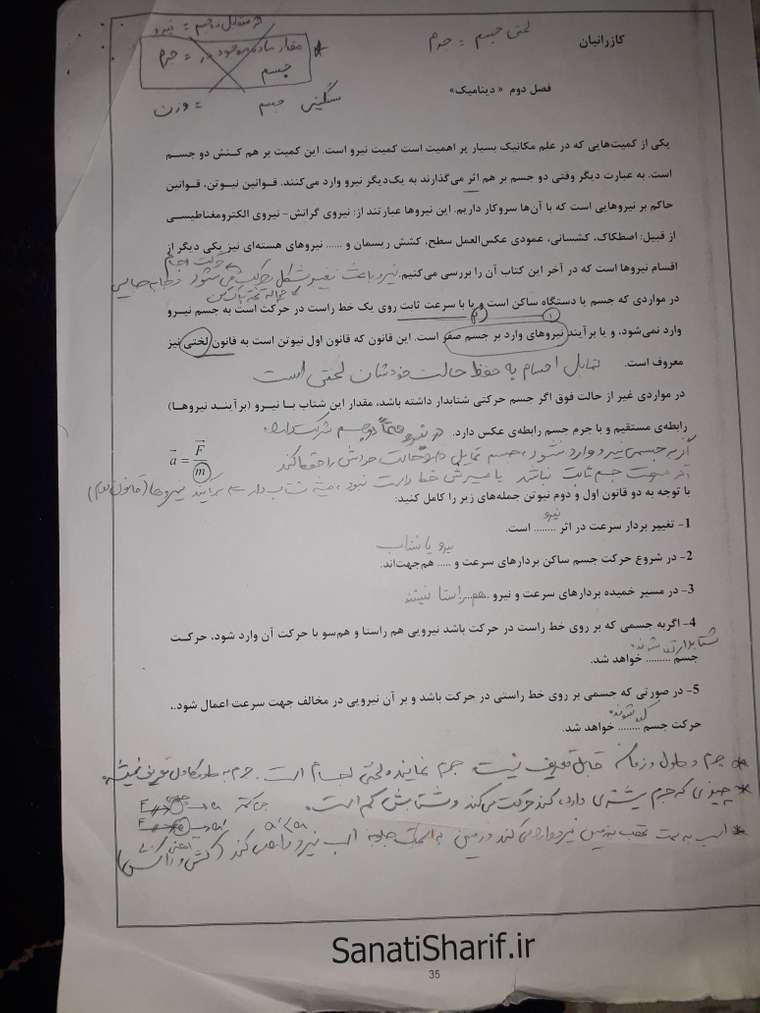 لختی جسم = جرم
کازرانیان
مقدار ماده موجود در = جرم
جسم
سنگینی جسم = وزن
فصل دوم « دینامیک»
یکی از کمیت‌هایی که در علم مکانیک بسیار پر اهمیت است کمیت نیرو است. این کمیت بر هم کنش دو جسم
است. به عبارت دیگر وقتی دو جسم بر هم اثر می‌گذارند به یک‌دیگر نیرو وارد می‌کنند. قوانین نیوتن، قوانین
حاکم بر نیروهایی است که با آن‌ها سروکار داریم. این نیروها عبارتند از: نیروی گرانش- نیروی الکترومغناطیسی
از قبیل: اصطکاک، کشسانی، عمودی عکس‌العمل سطح، کشش ریسمان و ...... نیروهای هسته‌ای نیز یکی دیگر از
اقسام نیروها است که در آخر این کتاب آن را بررسی می‌کنیم. نیرو باعث تغییر شکل
در مواردی که جسم یا دستگاه ساکن است و یا با سرعت ثابت روی یک خط راست در حرکت است به جسم نیرو
وارد نمی‌شود، و یا برآیند نیروهای وارد بر جسم صفر است. این قانون که قانون اول نیوتن است به قانون لختی نیز
معروف است. تمایل اجسام به حفظ حالت خودشان لختی است
در مواردی غیر از حالت فوق اگر جسم حرکتی شتابدار داشته باشد، مقدار این شتاب بـا نیـرو (برآینـد نیروهـا)
رابطه‌ی مستقیم و با جرم جسم رابطه‌ی عکس دارد.
a = F/m
اگر به جسمی نیرو وارد نشود، جسم تمایل دارد حالت خودش را حفظ کند
با توجه به دو قانون اول و دوم نیوتن جمله‌های زیر را کامل کنید:
1- تغییر بردار سرعت در اثر نیرو ........ است.
نیرو یا شتاب
2- در شروع حرکت جسم ساکن بردارهای سرعت و ..... هم‌جهت‌اند.
3- در مسیر خمیده بردارهای سرعت و نیرو هم راستا نیستند
4- اگربه جسمی که بر روی خط راست در حرکت باشد نیرویی هم راستا و هم‌سو با حرکت آن وارد شود، حرکـت
جسم ......... خواهد شد.
5- در صورتی که جسمی بر روی خط راستی در حرکت باشد و بر آن نیرویی در مخالف جهت سرعت اعمال شود.،
حرکت جسم ........ خواهد شد.
* جرم و طول و زمان قابل تعریف نیست جرم نماینده لختی اجسام است.
* چیزی که جرم بیشتری دارد، کند حرکت می‌کند و شتابش کم است.
* اسب به سمت عقب به زمین نیرو وارد می‌کند و زمین به سمت جلو به اسب نیرو وارد می‌کند
SanatiSharif.ir
35